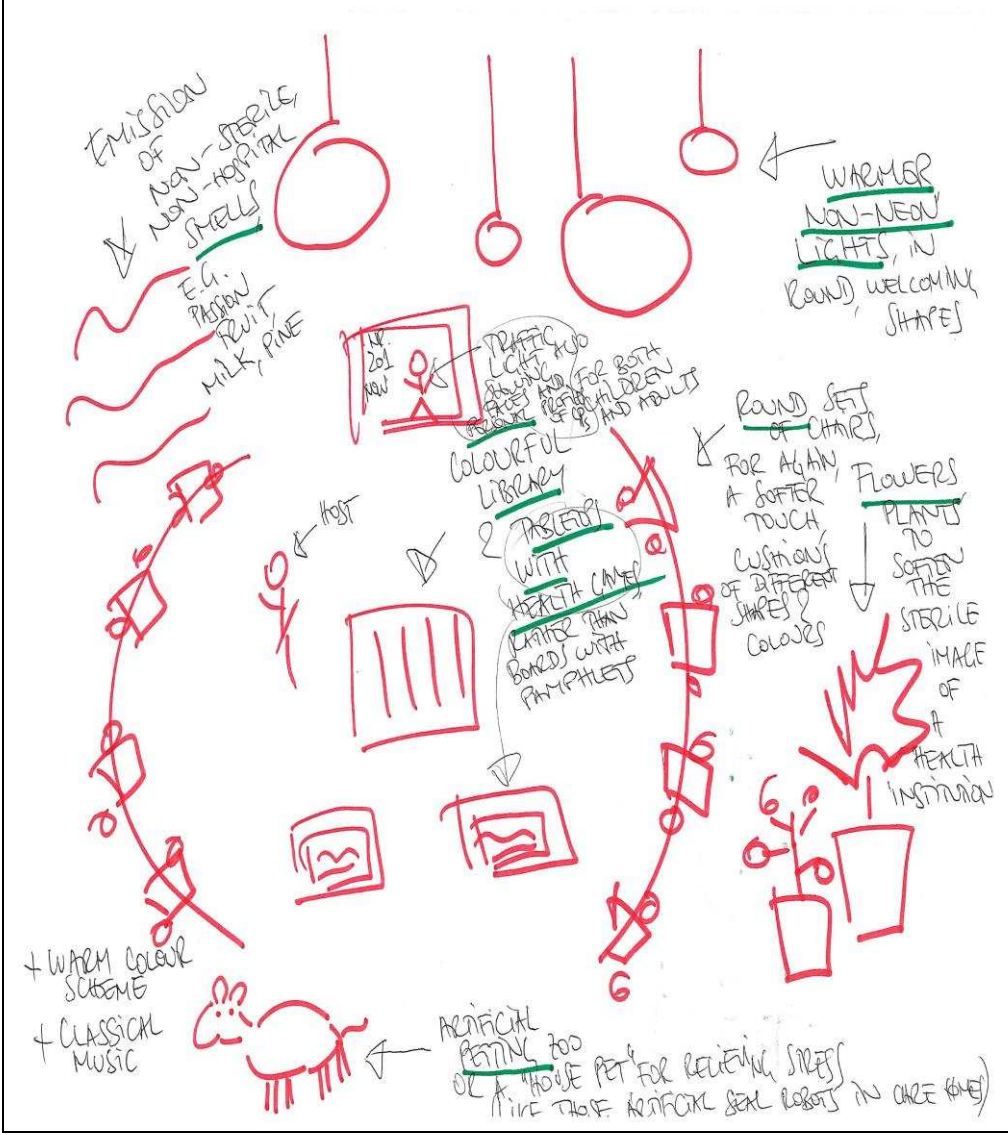 EMISSION
OF
NON-STERILE,
NON-HOSPITAL
SMELLS
E.G.
PASSION
FRUIT,
MILK, PINE
WARMER,
NON-NEON
LIGHTS, IN
ROUND, WELCOMING
SHAPES
NR.
201
NOW
TRAFFIC
LIGHT, ALSO
SHOWING
FACES AND FOR BOTH
PERSONAL PROFILES OF CHILDREN
AND ADULTS
COLOURFUL
LIBRARY
& TABLETOPS
WITH
HEALTH GAMES
RATHER THAN
BOARDS WITH
PAMPHLETS
HOST
ROUND SETS
OF CHAIRS,
FOR AGAIN
A SOFTER
TOUCH,
CUSHIONS
OF DIFFERENT
SHAPES &
COLOURS
FLOWERS
PLANTS
TO
SOFTEN
THE
STERILE
IMAGE
OF
A
HEALTH
INSTITUTION
+ WARM COLOUR
SCHEME
+ CLASSICAL
MUSIC
ARTIFICIAL
PETTING ZOO
OR A "HOUSE PET" FOR RELIEVING STRESS
(LIKE THOSE ARTIFICIAL SEAL ROBOTS IN CARE HOMES)